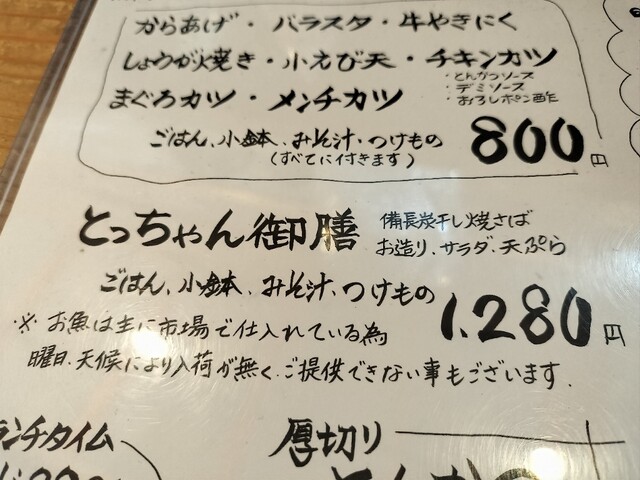 からあげ・バラスタ・牛やきにく
しょうが焼き・小えび天・チキンカツ
・とんかつソース
・デミソース
・おろしポン酢
まぐろカツ・メンチカツ
ごはん、小鉢、みそ汁、つけもの
(すべてに付きます)
800円
とっちゃん御膳
備長炭干し焼さば
お造り、サラダ、天ぷら
ごはん、小鉢、みそ汁、つけもの
1,280円
※ お魚は主に市場で仕入れている為
曜日、天候により入荷が無く、ご提供できない事もございます.
ランチタイム
厚切り